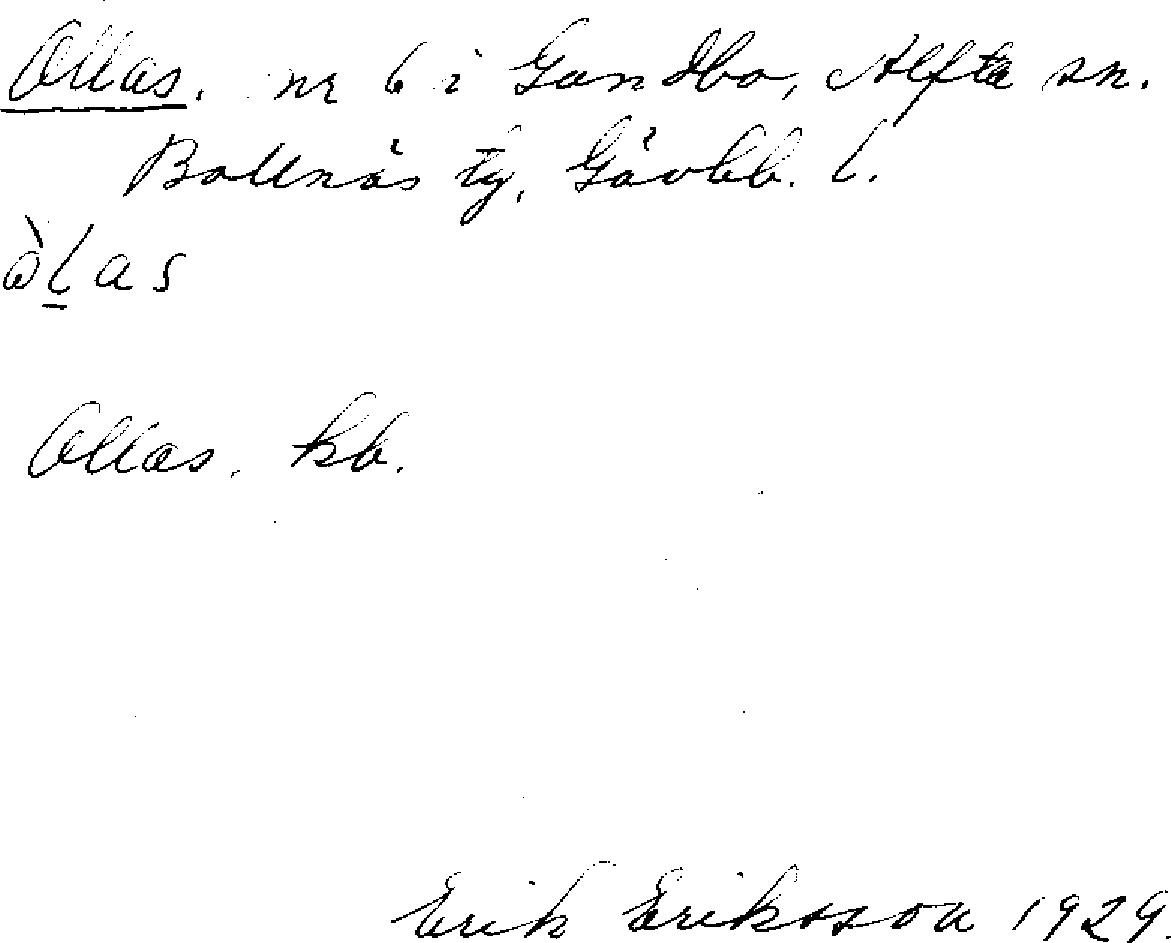 Ollas. nr 6 i Gundbo, Alfta sn.
Bollnäs tg, Gävleb. l.
Ollas. kb.
Erik Eriksson 1929.